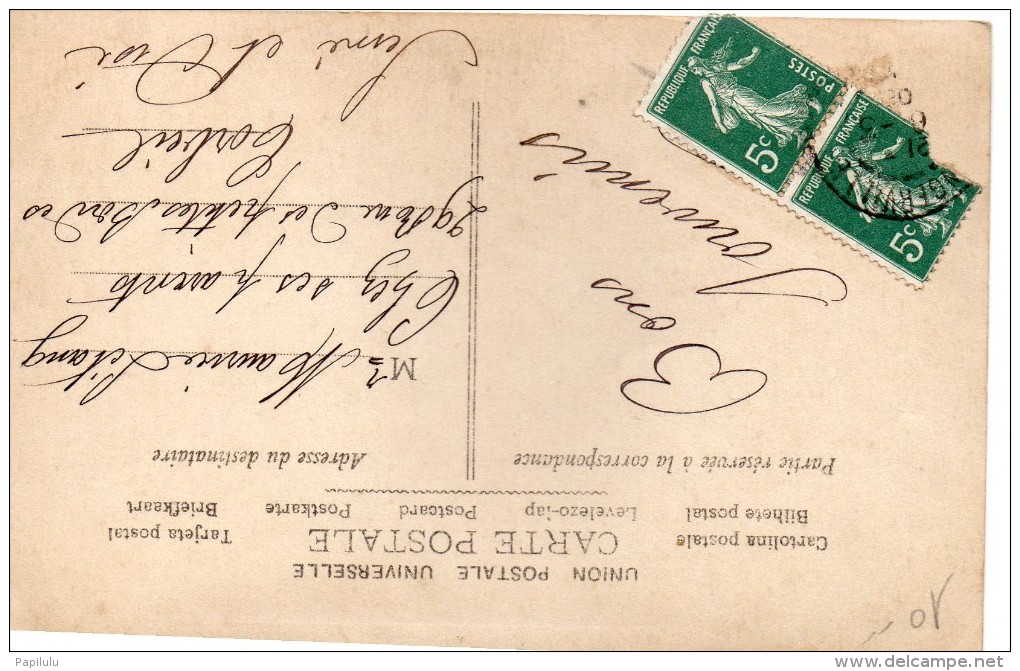 UNION POSTALE UNIVERSELLE
CARTE POSTALE
Cartolina postale
Bilhete postal
Levelezo-iap
Postcard
Postkarte
Tarjeta postal
Briefkaart
Partie réservée à la correspondance
Bons
Souvenirs
Adresse du destinataire
Mr Maurice Létang
Chez ses parents
des petites Bordes
Corbeil
Seine et Oise
RÉPUBLIQUE FRANÇAISE
POSTES
5c
RÉPUBLIQUE FRANÇAISE
5c
Papilulu
www.delcampe.net